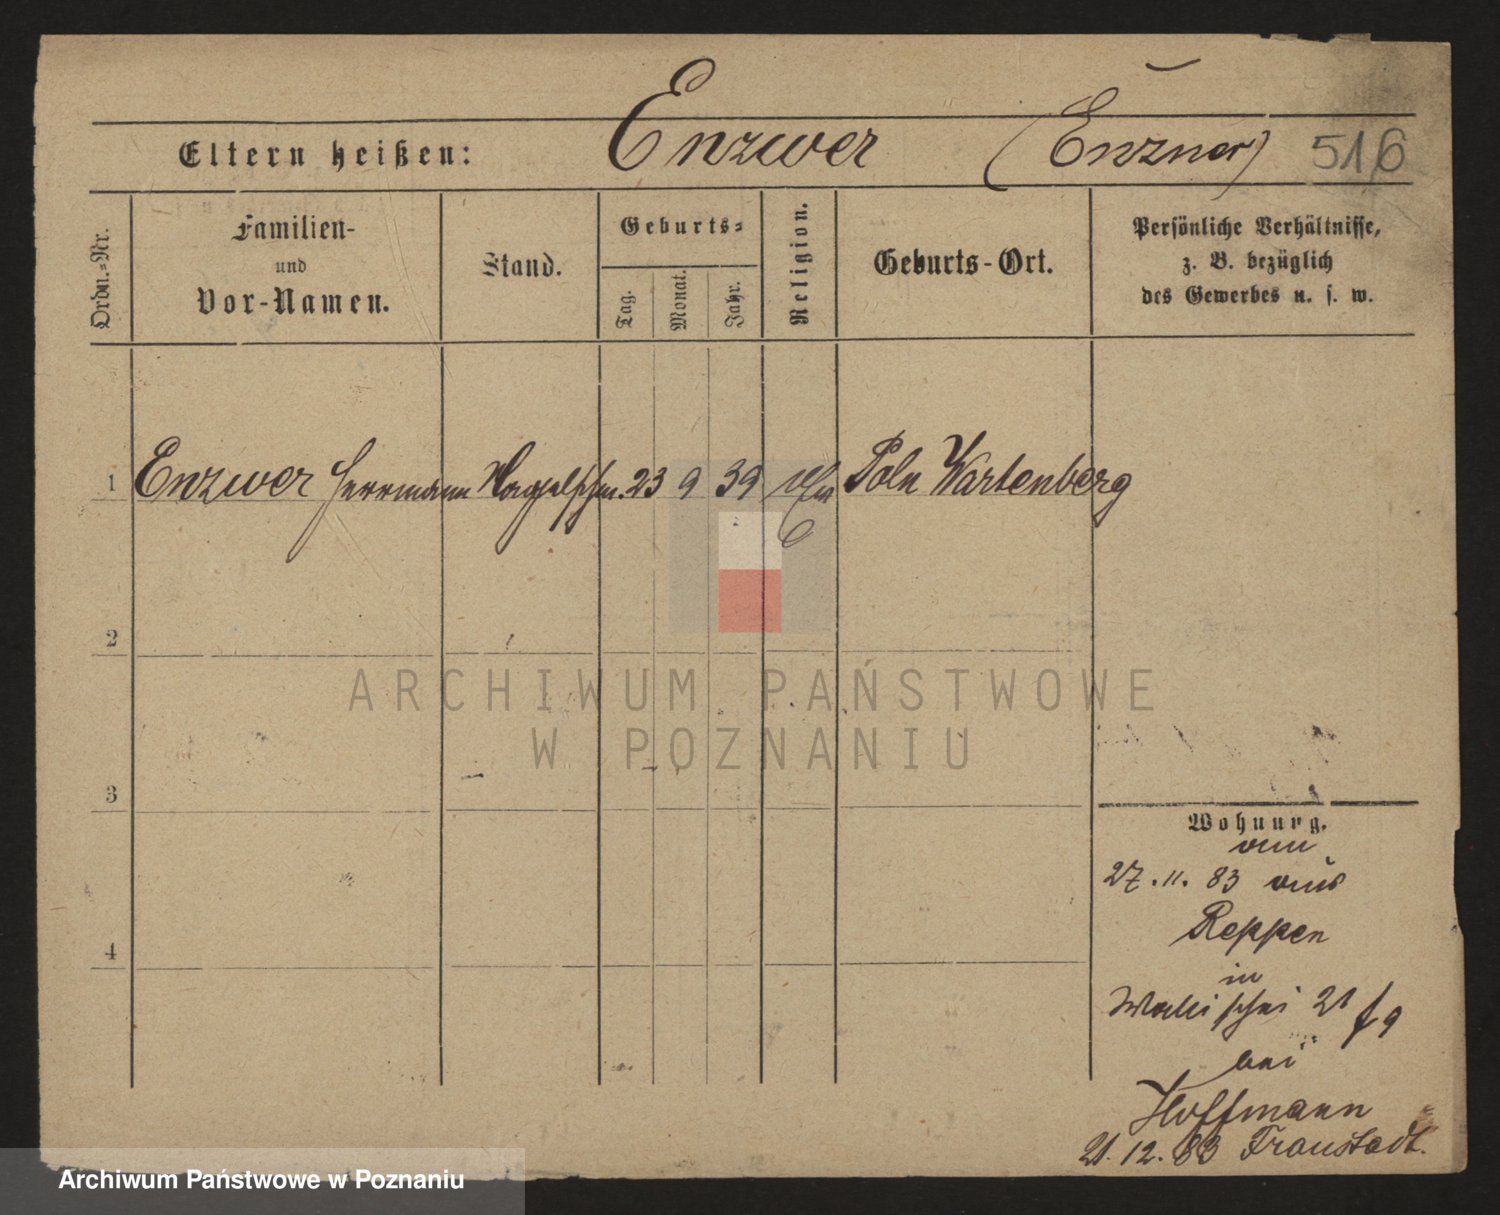 Eltern heißen: Enzwer (Enzner) 516
Ordn.-Nr.
Familien-
und
Vor-Namen.
Stand.
Geburts-
Tag.
Monat.
Jahr.
Religion.
Geburts-Ort.
Persönliche Verhältnisse,
z. B. bezüglich
des Gewerbes u. s. w.
1 Enzwer Herrmann 23 9 39 Poln Wartenberg
2
ARCHIWUM PAŃSTWOWE
W POZNANIU
3
Wohnung.
27.11.83 aus
Reppen
in
Wallischei 21
bei
Hoffmann
21.12.83 Fraustadt.
4
Archiwum Państwowe w Poznaniu